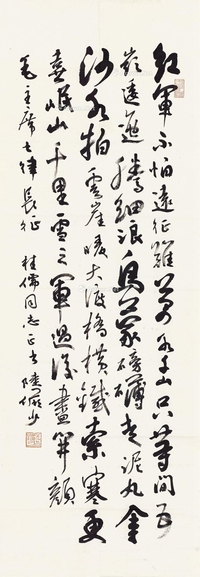 紅軍不怕遠征難萬水千山只等閒五
嶺逶迤騰細浪烏蒙磅礴走泥丸金
沙水拍雲崖暖大渡橋橫鐵索寒更
喜岷山千里雪三軍過後盡開顏
毛主席七律長征 桂儒同志正之 陸儼少